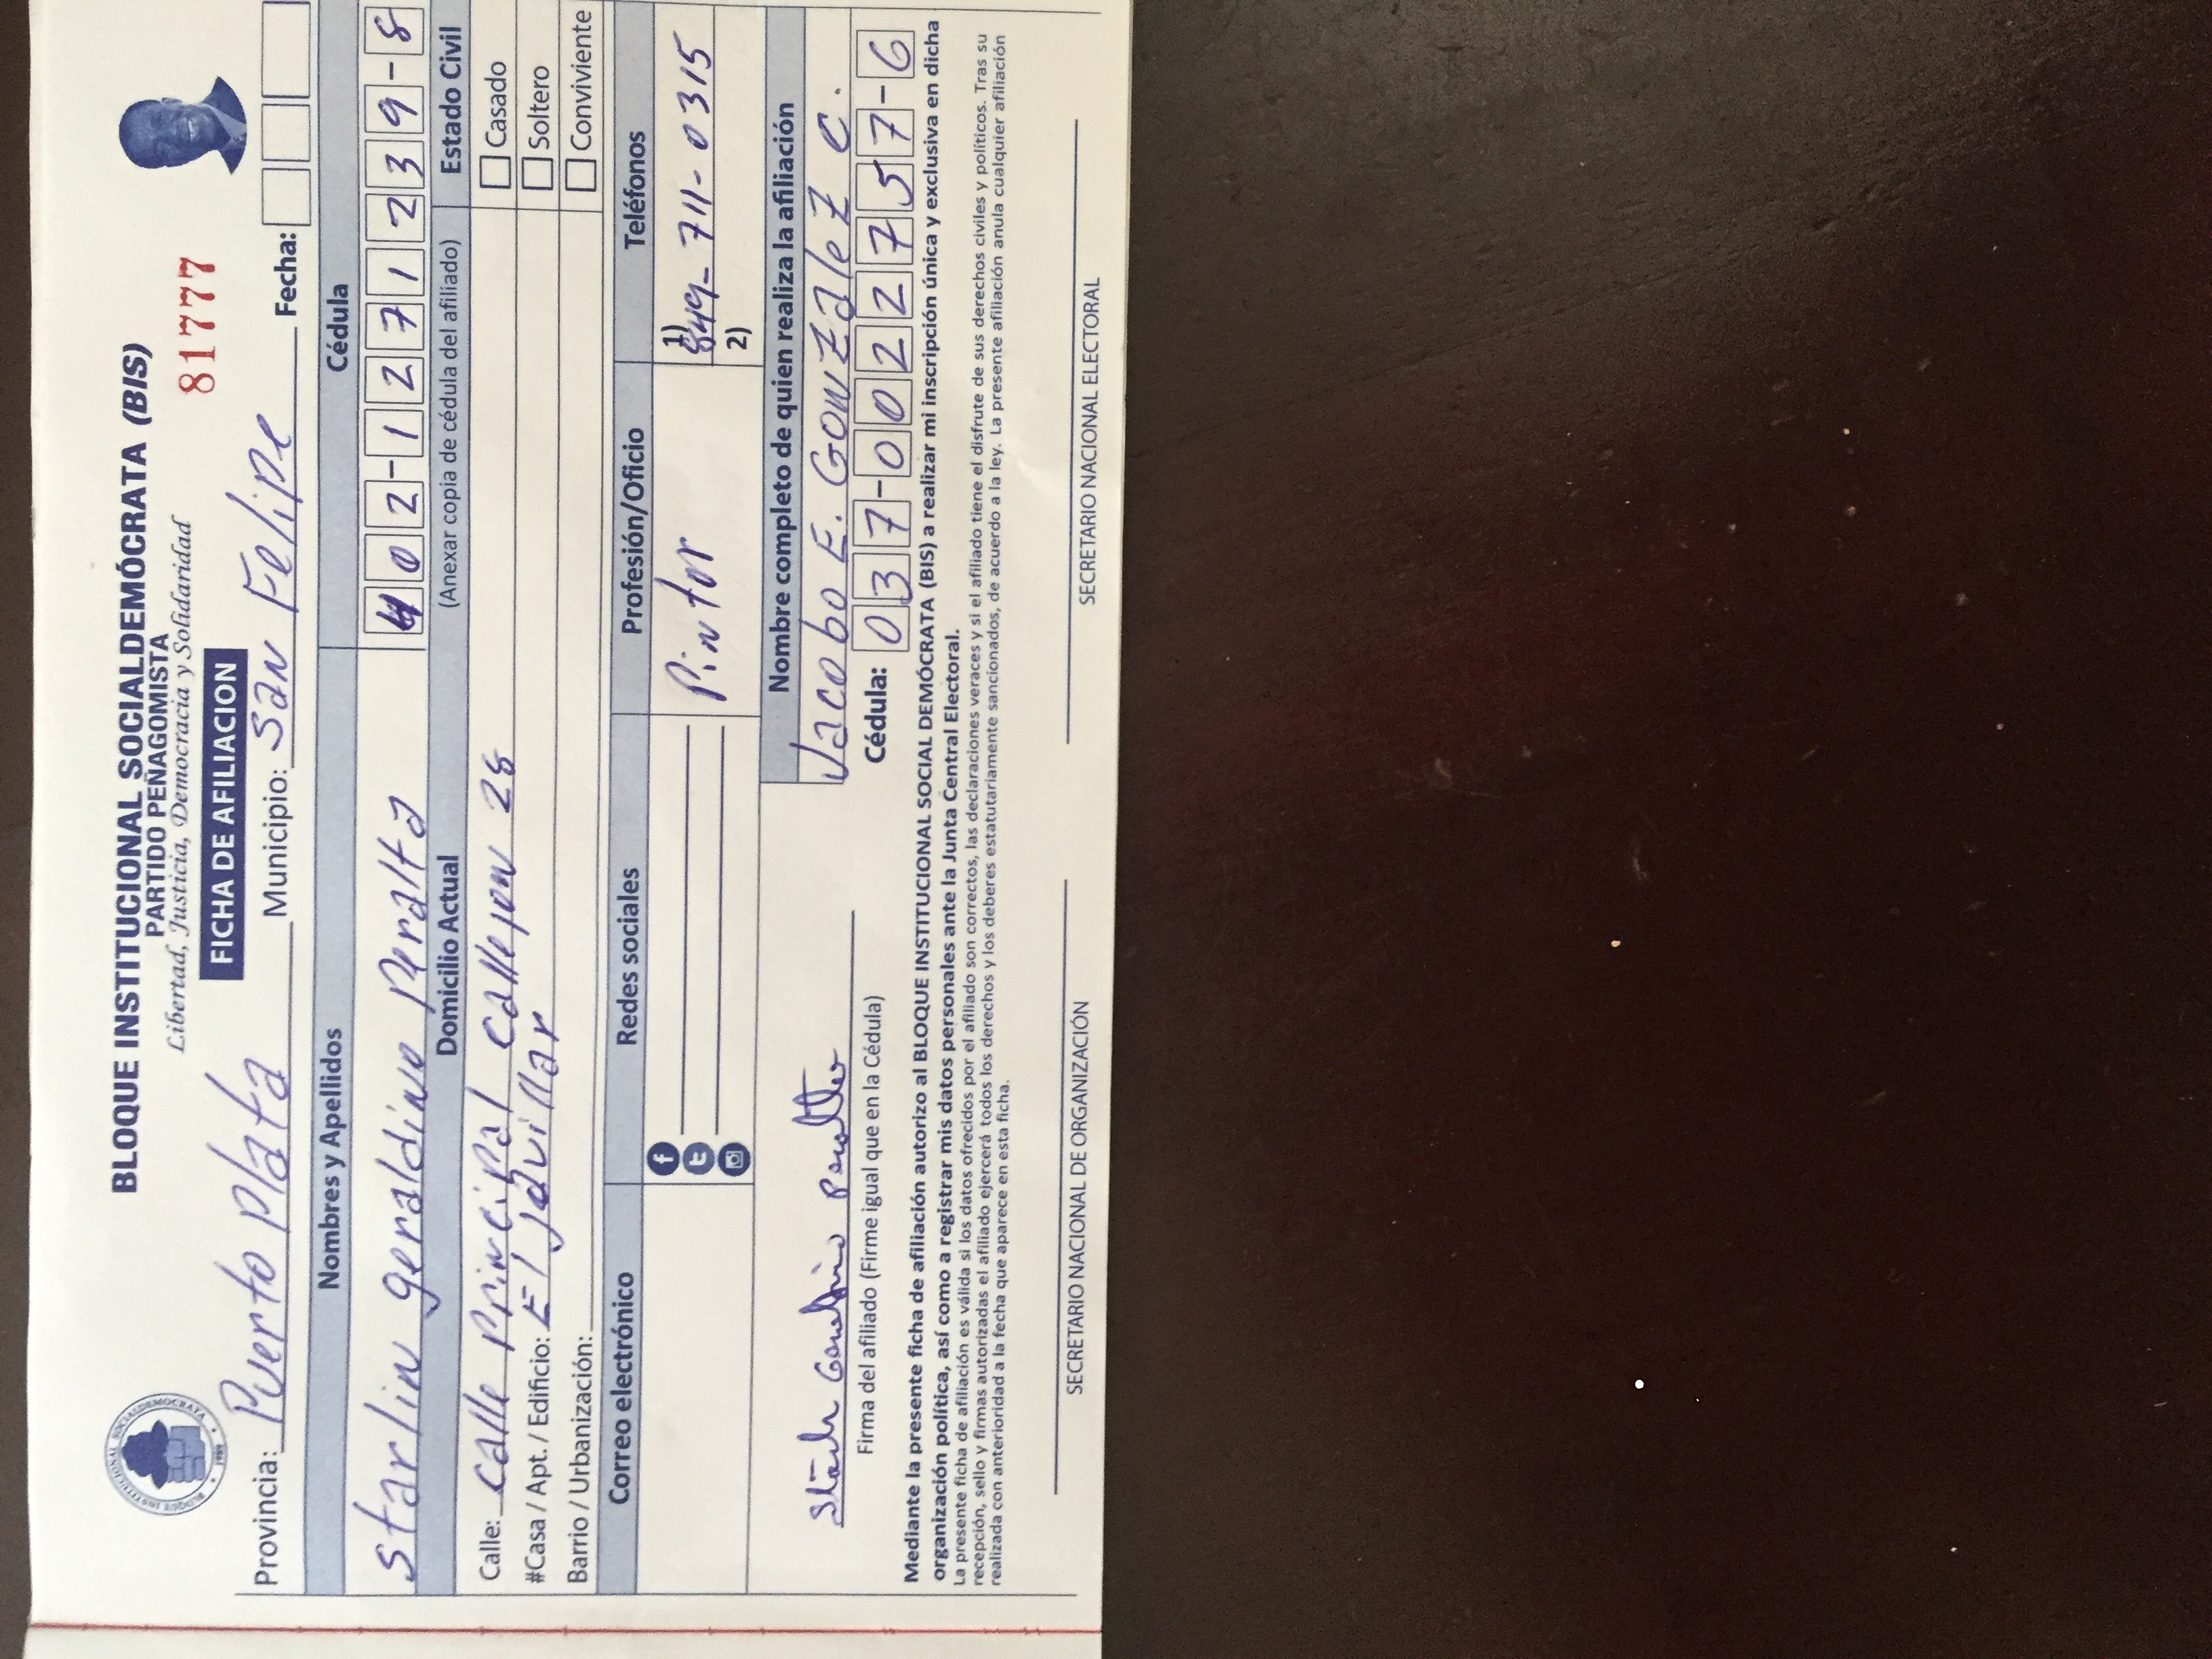 BLOQUE INSTITUCIONAL SOCIALDEMÓCRATA (BIS)
PARTIDO PEÑAGOMISTA
Libertad, Justicia, Democracia y Solidaridad
81777
FICHA DE AFILIACION
Provincia: Puerto Plata Municipio: San Felipe Fecha:
Nombres y Apellidos Cédula
Starlin geraldino Peralta 402-1227123 9-8
Domicilio Actual (Anexar copia de cédula del afiliado) Estado Civil
Calle: Calle Principal Callejon 28 Casado
#Casa / Apt. / Edificio: El javillar Soltero
Barrio / Urbanización: Conviviente
Correo electrónico Redes sociales Profesión/Oficio Teléfonos
Pintor 1) 849-711-0315
2)
Nombre completo de quien realiza la afiliación
Jacobo E. González C.
Starlin Geraldino Peralta
Firma del afiliado (Firme igual que en la Cédula) Cédula: 037-0022757-6
Mediante la presente ficha de afiliación autorizo al BLOQUE INSTITUCIONAL SOCIAL DEMÓCRATA (BIS) a realizar mi inscripción única y exclusiva en dicha
organización política, así como a registrar mis datos personales ante la Junta Central Electoral.
La presente ficha de afiliación es válida si los datos ofrecidos por el afiliado son correctos, las declaraciones veraces y si el afiliado tiene el disfrute de sus derechos civiles y políticos. Tras su
recepción, sello y firmas autorizadas el afiliado ejercerá todos los derechos y los deberes estatutariamente sancionados, de acuerdo a la ley. La presente afiliación anula cualquier afiliación
realizada con anterioridad a la fecha que aparece en esta ficha.
SECRETARIO NACIONAL DE ORGANIZACIÓN SECRETARIO NACIONAL ELECTORAL